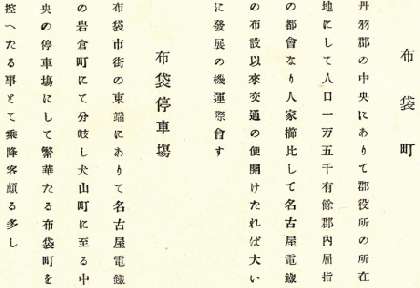 布袋町
丹羽郡の中央にありて郡役所の所在
地にして人口一万五千有餘郡内屈指
の都會なり人家櫛比して名古屋電鐵
の布設以來交通の便開けたれば大い
に發展の機運際會す
布袋停車場
布袋市街の東端にありて名古屋電鐵
の岩倉町にて分岐し犬山町に至る中
央の停車塲にして繁華なる布袋町を
控へたる事とて乘降客頗る多し